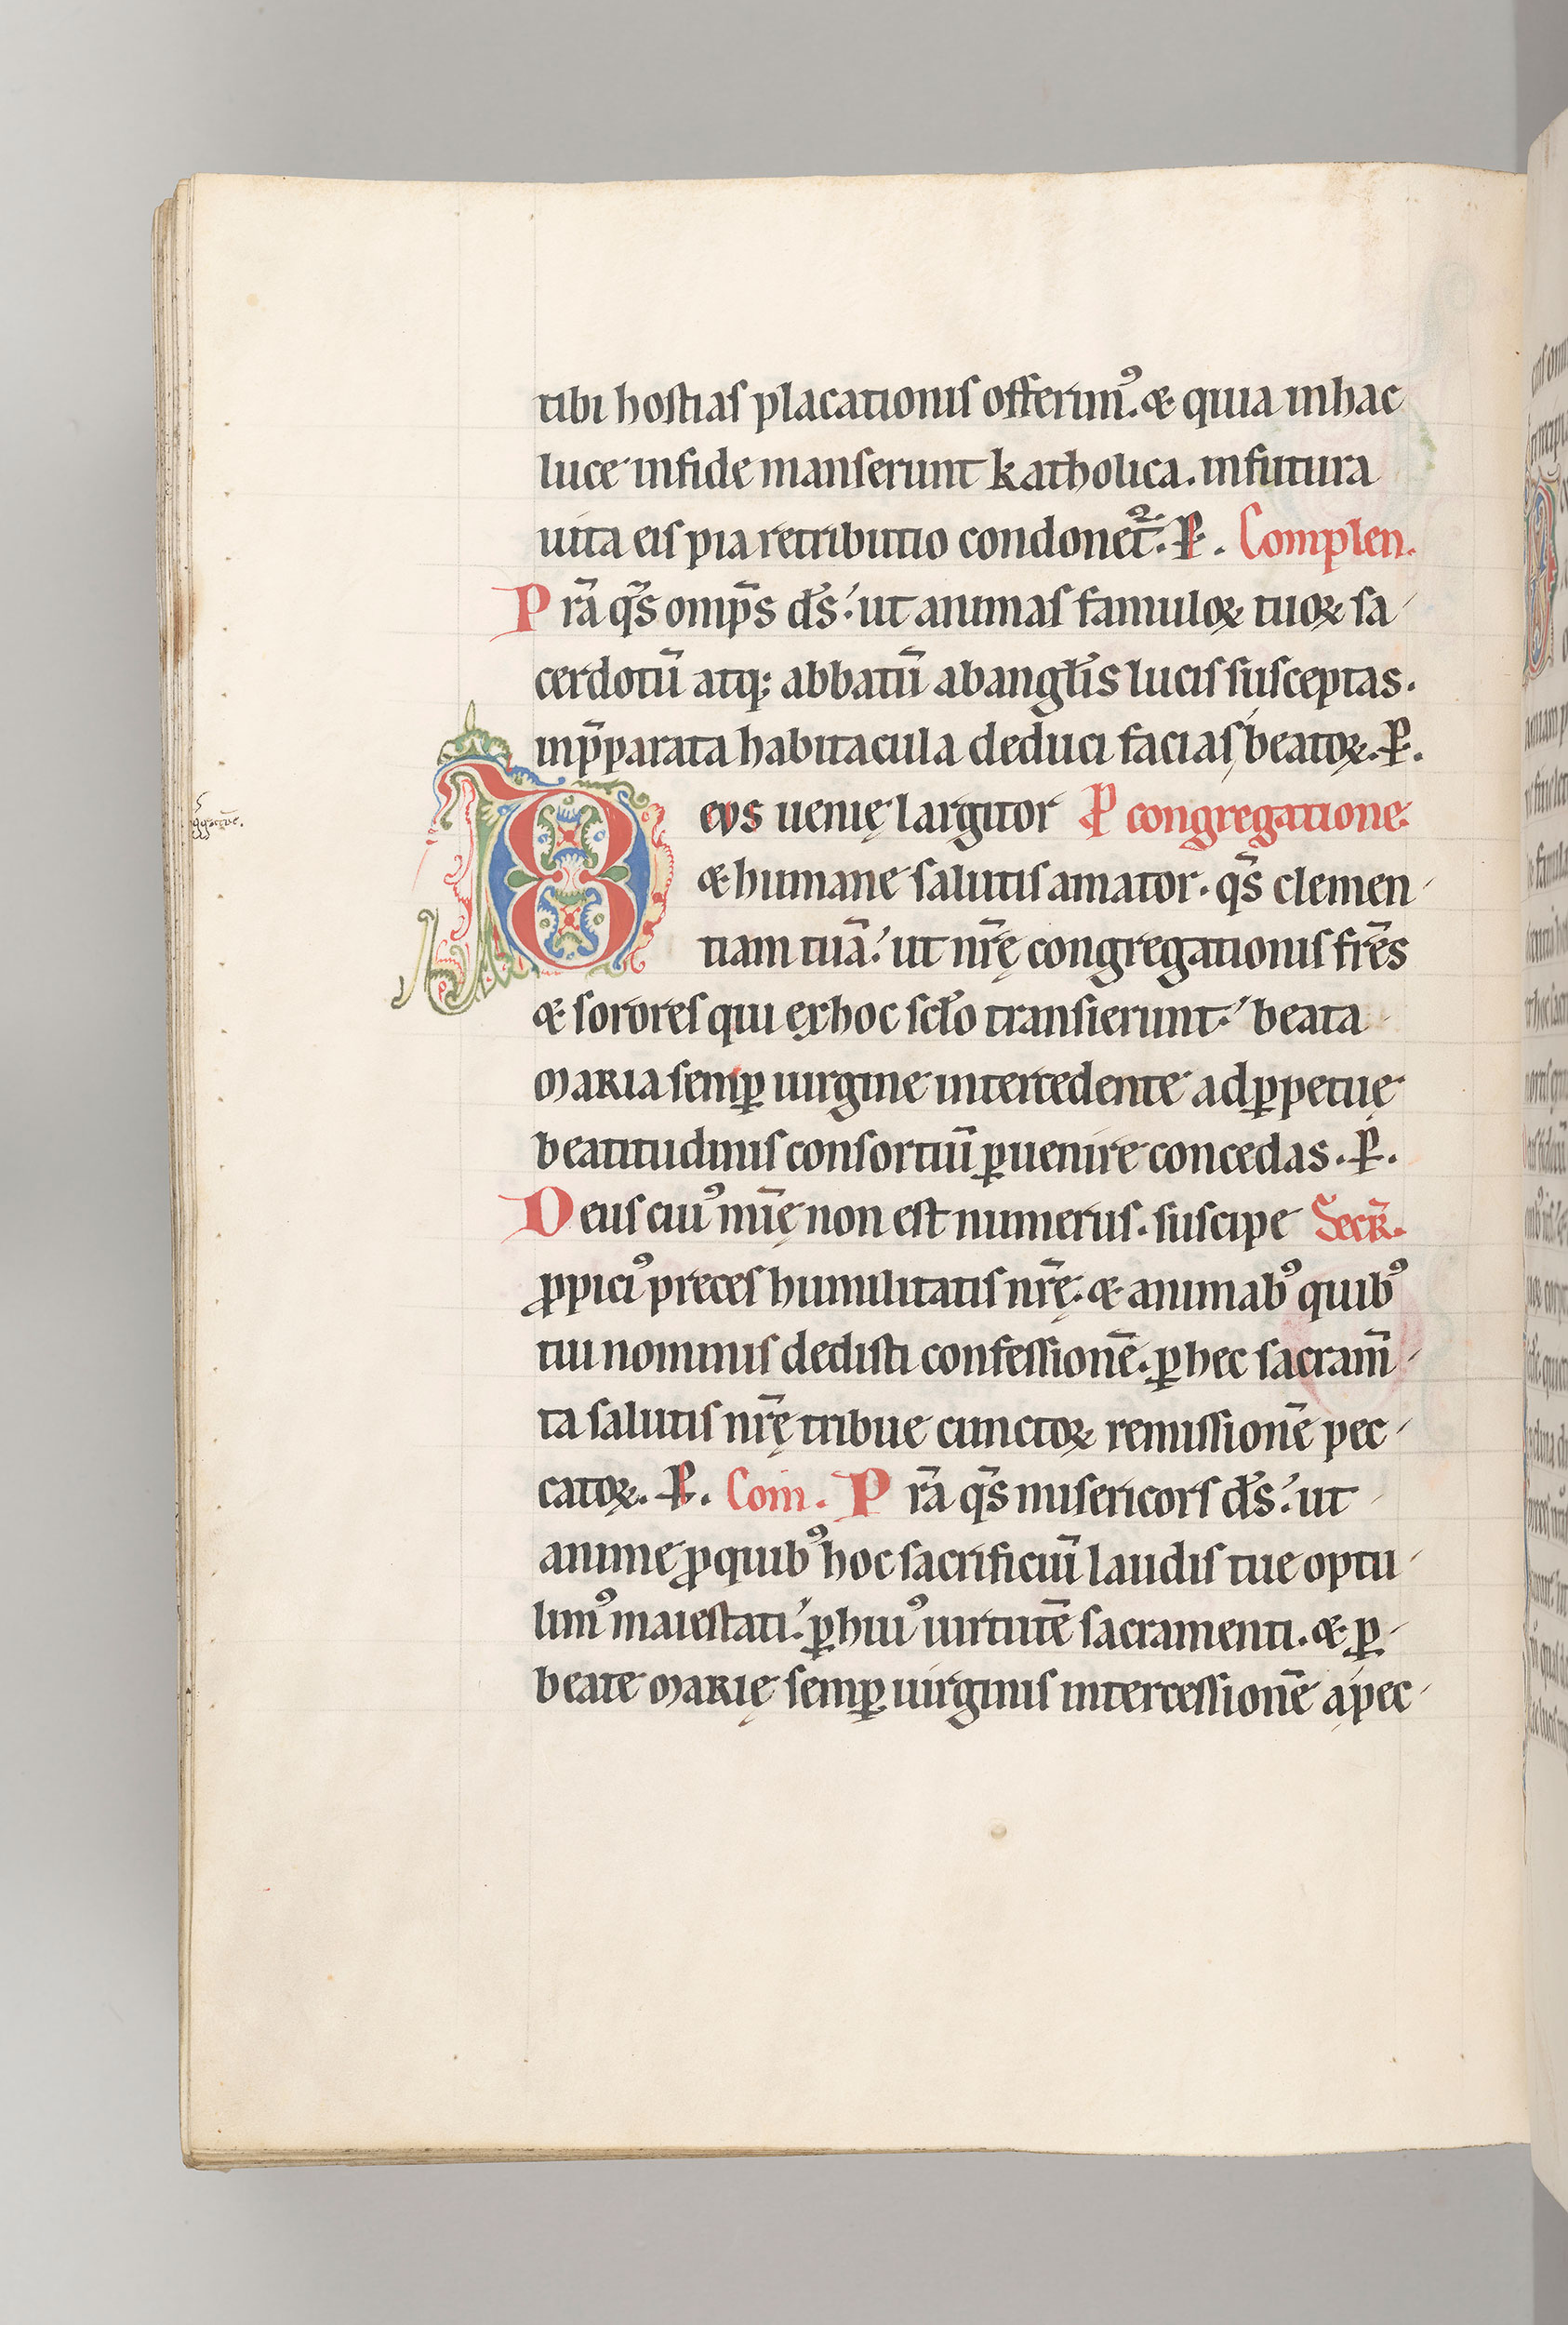 tibi hostias placationis offerim᾽. & quia inhac
luce infide manserunt katholica. infutura
uita eis pia retributio condonet᷑. P̵. Complen.
P rā q̄s omp̄s d̄s. ut animas famuloꝝ tuoꝝ sa
cerdotū atq; abbatū abangl̄is lucis susceptas.
inp̄parata habitacula deduci facias beatoꝝ. P̵.
D eus uenię largitor P congregatione
& humane salutis amator. q̄s clemen
tiam tuā. ut nr̄ę congregationis fr̄es
& sorores qui exhoc scl̄o transierunt. beata
MARIA semꝑ uirgine intercedente adꝑpetuę
beatitudinis consortiū ꝑuenire concedas. P̵.
D eus cuiꝰ mīę non est numerus. suscipe Secr̄.
ꝓpiciꝰ preces humilitatis nr̄ę. & animabꝰ quibꝰ
tui nominis dedisti confessionē. ꝑ hec sacram̄
ta salutis nr̄ę tribue cunctoꝝ remissionē pec
catoꝝ. P̵. Com̄. P rā q̄s misericors d̄s. ut
anime ꝓquibꝰ hoc sacrificiū laudis tue optu
limꝰ maiestati. ꝑ huiꝰ uirtutē sacramenti. & ꝑ
beate MARIę semꝑ uirginis intercessionē apec